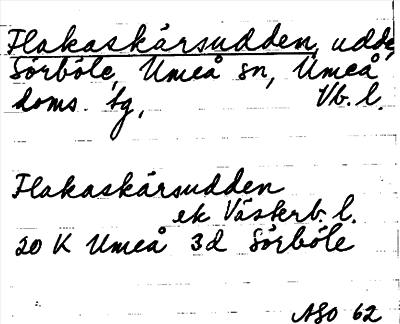 Flakaskärsudden, udde,
Sörböle, Umeå sn, Umeå
doms. tg, Vb. l.
Flakaskärsudden
ek Västerb. l.
20 K Umeå 3d Sörböle
ASO 62